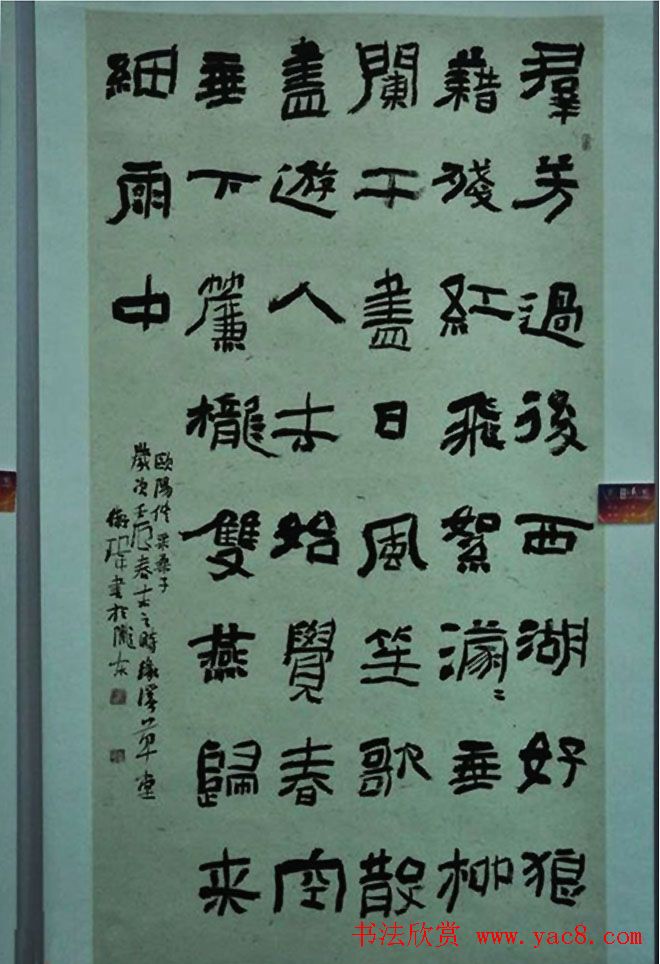 羣芳過後西湖好狼
藉殘紅飛絮濛〻垂柳
闌干盡日風笙歌散
盡遊人去始覺春空
垂下簾櫳雙燕歸来
細雨中
歐陽修采桑子
歲次壬辰春之時草堂
書於隴右
书法欣赏 www.yac8.com